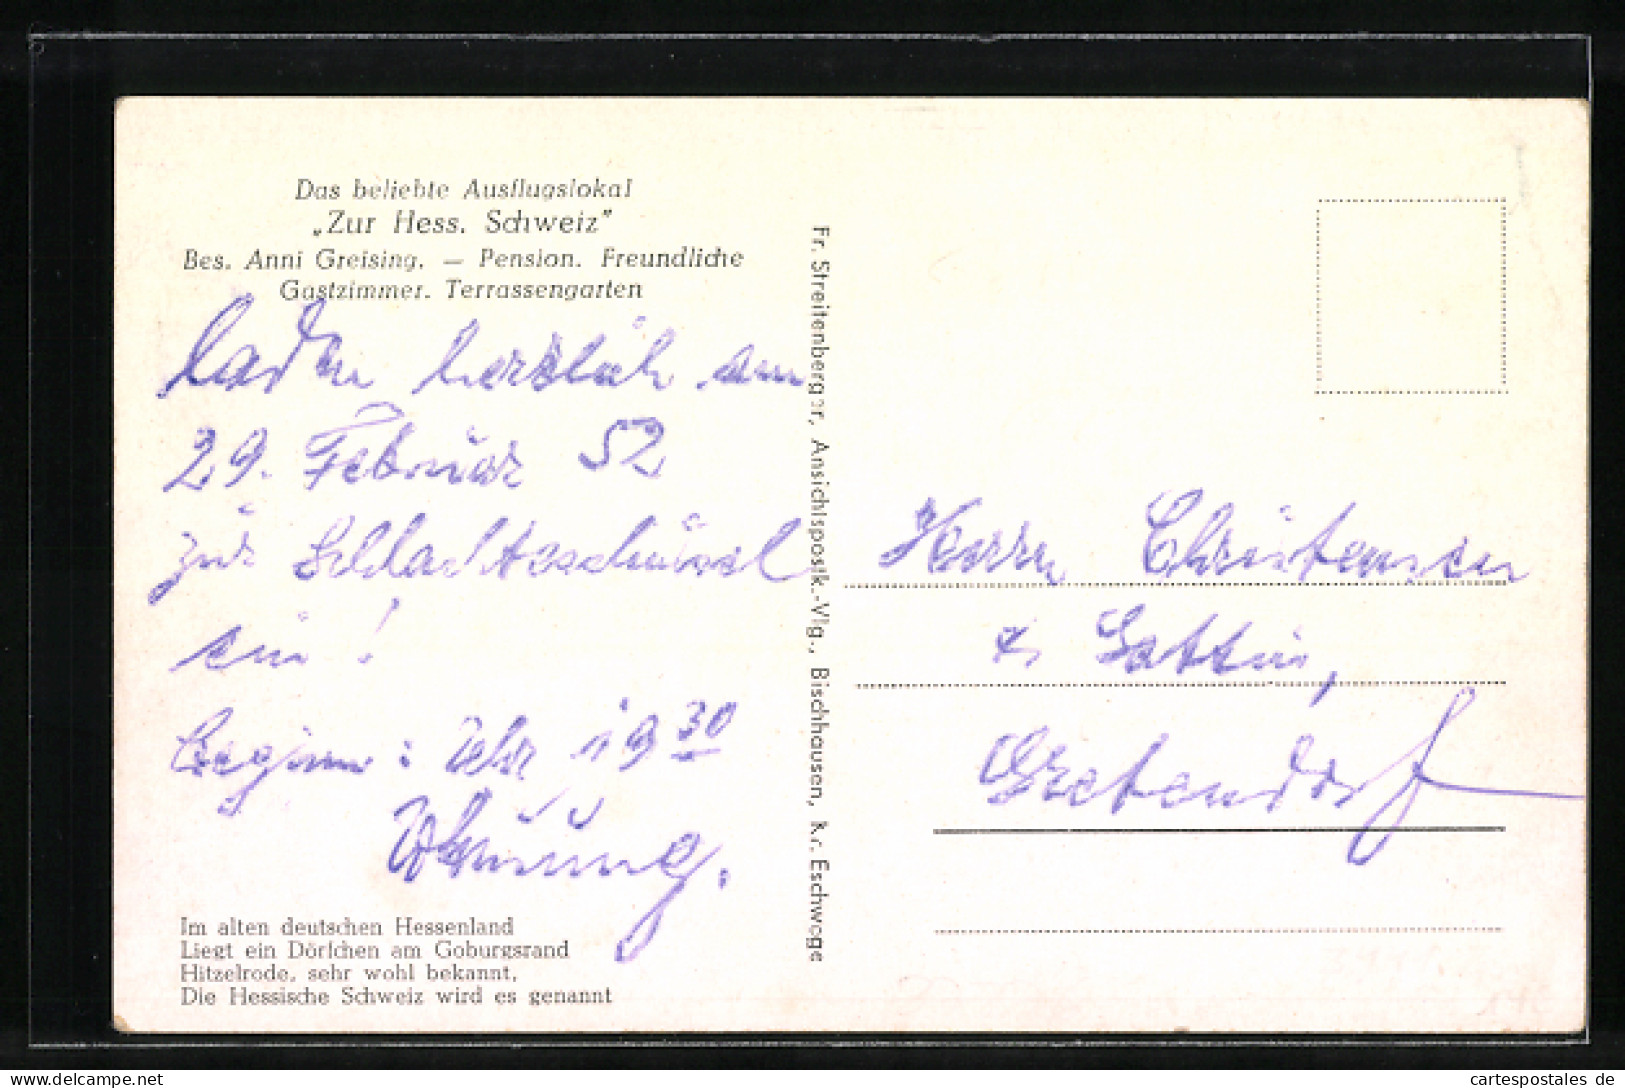 Das beliebte Ausflugslokal
„Zur Hess. Schweiz"
Bes. Anni Greising. — Pension. Freundliche
Gastzimmer. Terrassengarten
Laden herzlich am
29. Februar 52
zur Schlachteschüssel
ein!
Beginn: Uhr 19 30
Im alten deutschen Hessenland
Liegt ein Dörfchen am Goburgsrand
Hitzelrode, sehr wohl bekannt,
Die Hessische Schweiz wird es genannt
Fr. Streitenberger, Ansichtspostk.-Vlg., Bischhausen, Kr. Eschwege
Herrn Christensen
& Gattin,
Grebendorf
cartespostales de